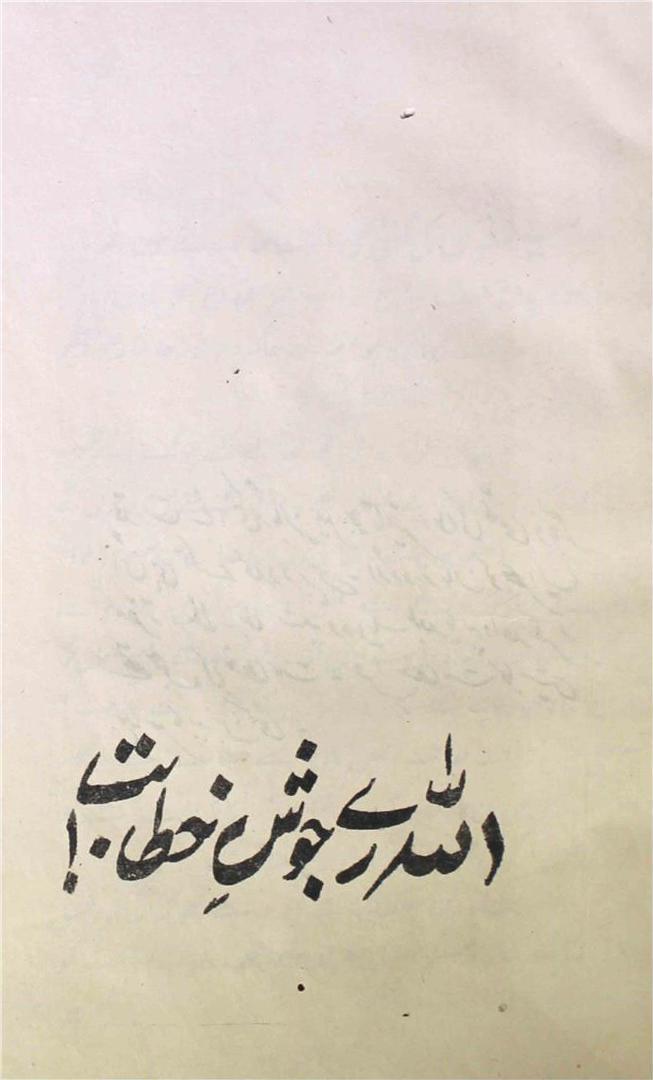 اللہ رے جوشِ خطابت!